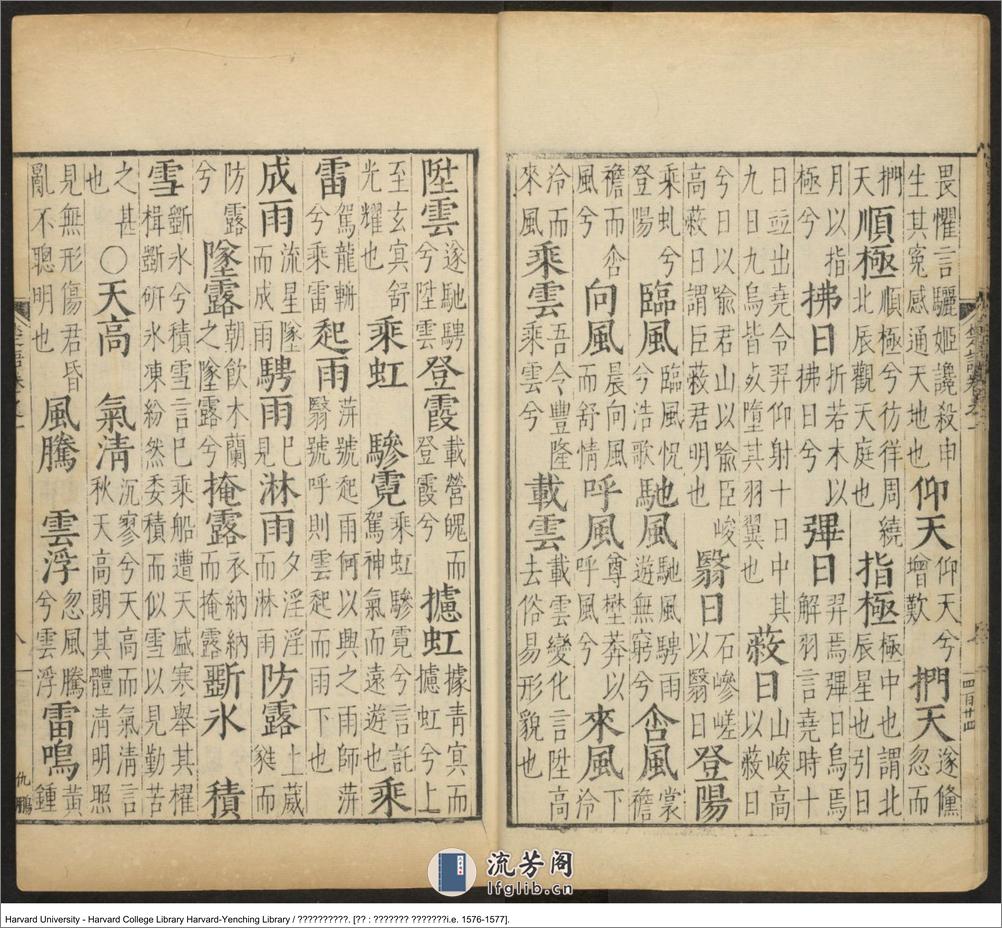 畏懼言驪姬讒殺申生其冤感通天地也仰天仰天兮增歎捫天遂儵忽而
捫天順極順極兮彷徉周繞北辰觀天庭也指極極中也謂北辰星也引日
月以指極兮拂日折若木以拂日兮彃日羿焉彃日烏焉解羽言堯時十
日並出堯令羿仰射十日中其九日日九烏皆死墮其羽翼也蔽日山峻高以蔽日
兮日以喻君山以喻臣峻高蔽日謂臣蔽君明也翳日石嵾嵯以翳日登陽
乘虬兮登陽臨風臨風怳兮浩歌馳風馳風騁雨遊無窮兮含風裳襜
襜而含風兮向風晨向風而舒情呼風尊椘莽以呼風兮來風下泠
泠而來風乘雲吾令豐隆乘雲兮載雲載雲變化言陞高去俗易形貌也
四百廿四
陞雲遂馳騁兮陞雲登霞載營魄而登霞兮攄虹據青冥而攄虹兮上
至玄冥舒光耀也乘虹 驂霓乘虹驂霓兮言託駕神氣而遠遊也乘
雷駕龍輈兮乘雷起雨蓱號起雨何以興之雨師蓱翳號呼則雲起而雨下也
成雨流星墜而成雨騁雨巳見淋雨夕淫淫而淋雨防露上葳蕤而
防露兮墜露朝飲木蘭之墜露兮掩露衣納納而掩露斲氷 積
雪斲氷兮積雪言巳乘船遭天盛寒舉其櫂楫斲斫氷凍紛然委積而似雪以見勤苦
之甚也○天高 氣清沉寥兮天高而氣清言秋天高朗其體清明照
見無形傷君昏亂不聰明也風騰 雲浮忽風騰兮雲浮雷鳴黃鍾
八
仇鵬
流芳阁
lfglib.cn
Harvard University - Harvard College Library Harvard-Yenching Library / ??????????. [?? : ??????? ???????i.e. 1576-1577].